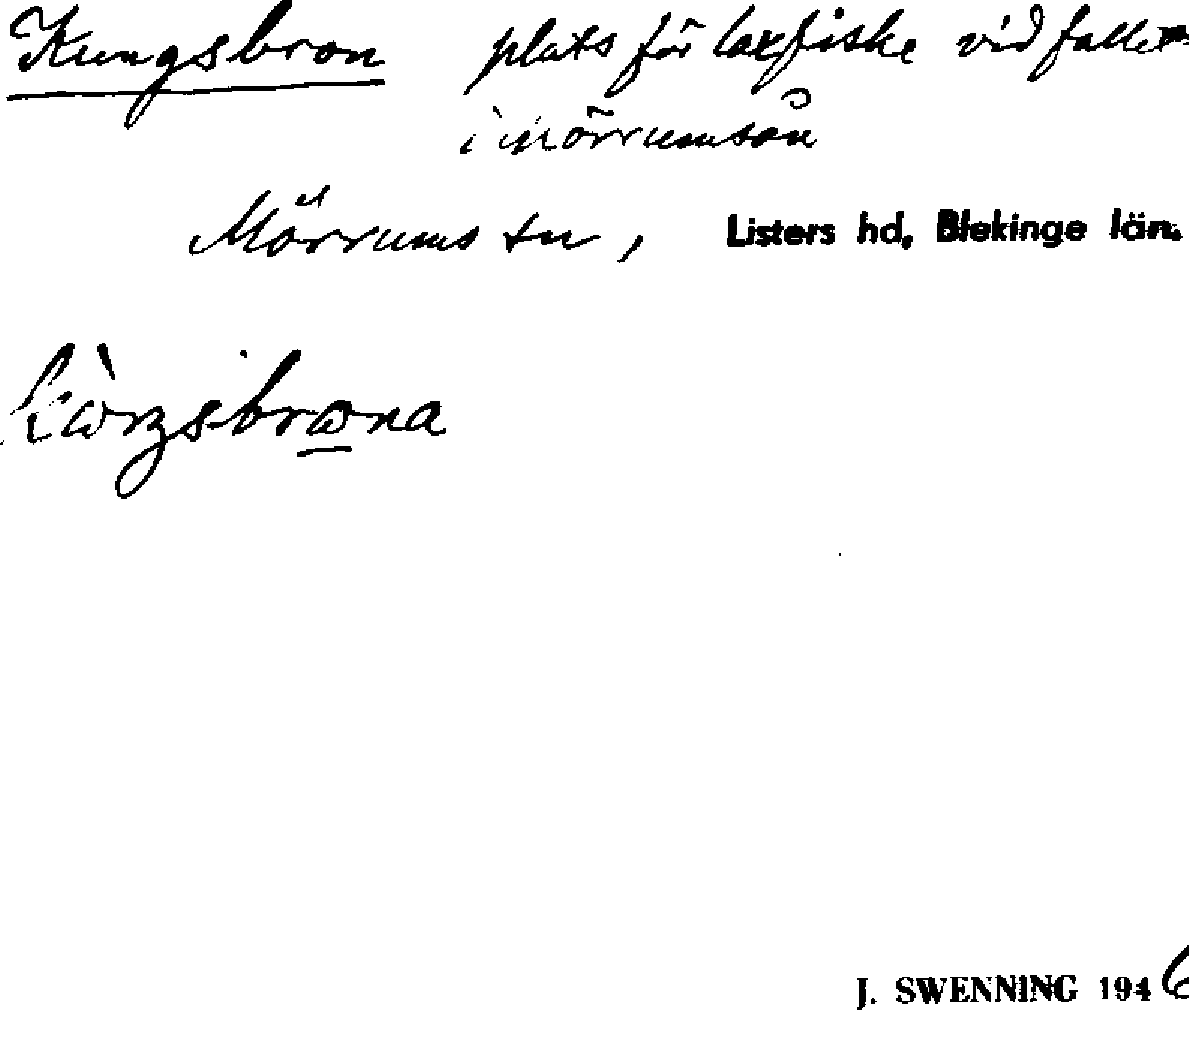 Kungsbron plats för laxfiske vid fallen
i Mörrumsån
Mörrums sn, Listers hd, Blekinge län.
J. SWENNING 1946